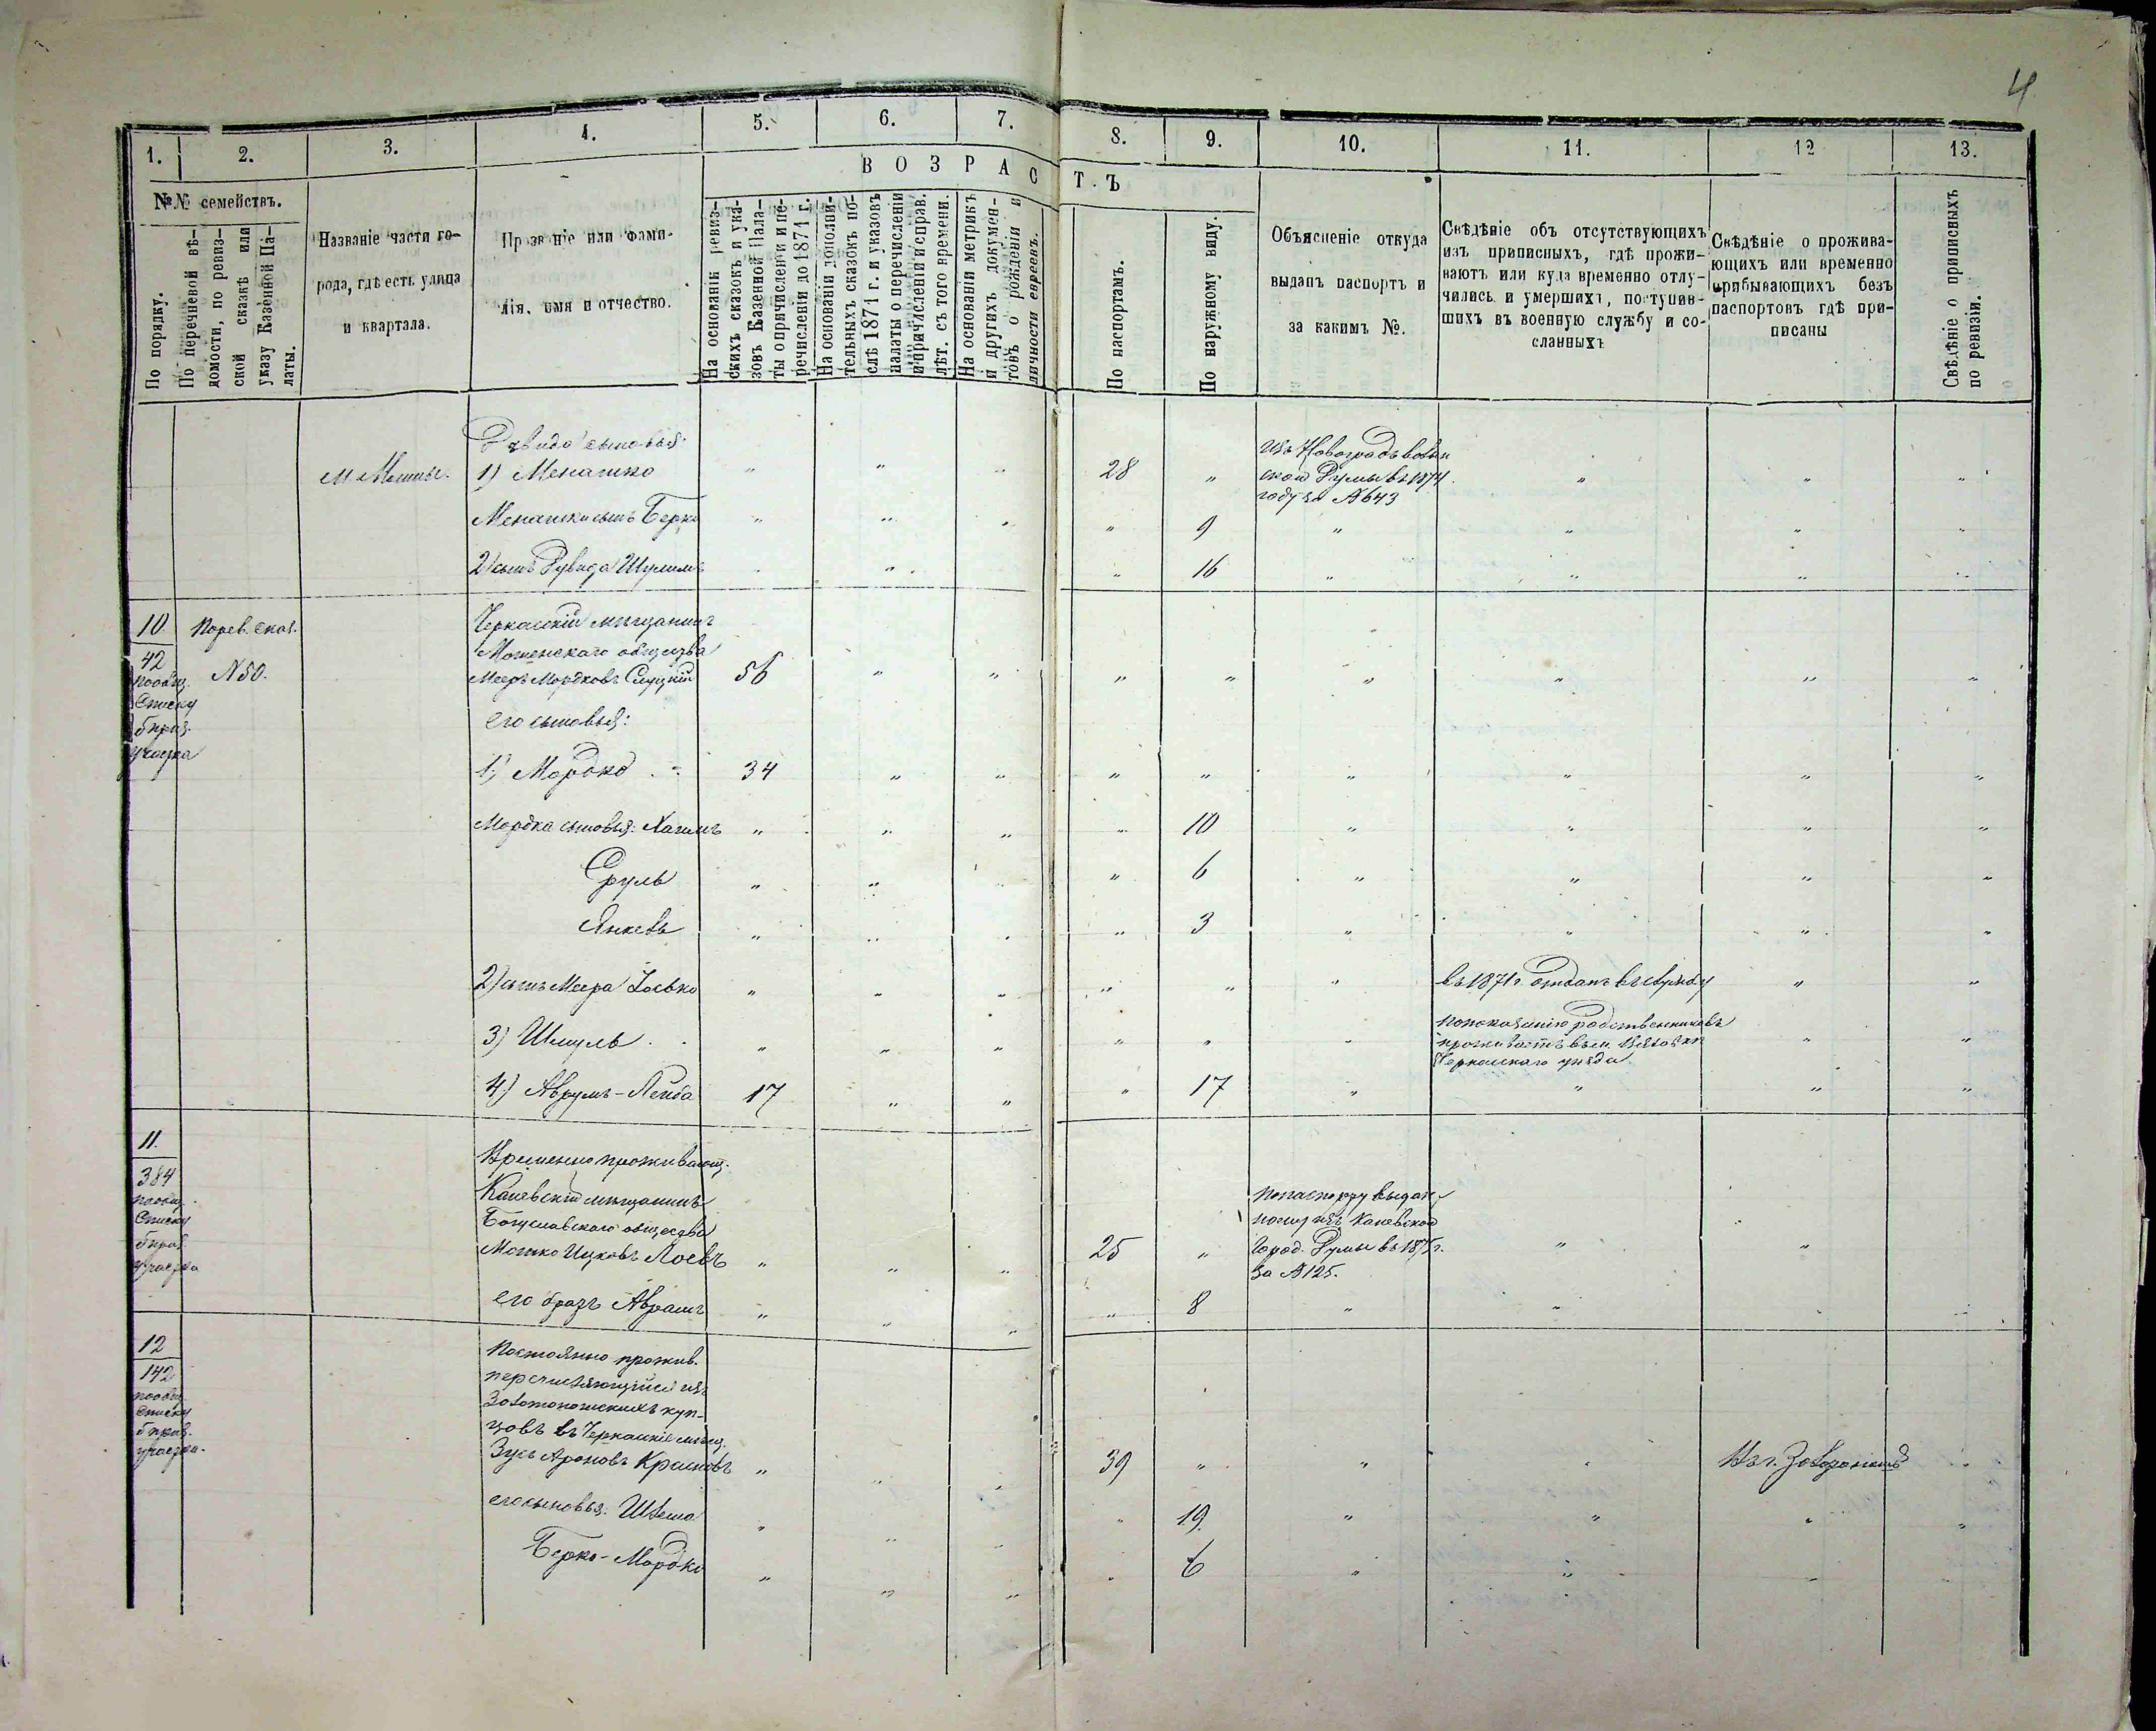 4
1.
2.
3.
4.
5.
6.
7.
8.
9.
10.
11.
12
13.
В О З Р А С Т Ъ
№№ семействъ.
По порядку.
По перечневой вѣ-
домости, по ревиз-
ской сказкѣ или
указу Казенной Па-
латы.
Названіе части го-
рода, гдѣ есть улица
и квартала.
Прозваніе или фами-
лія, имя и отчество.
На основаніи ревиз-
скихъ сказокъ и ука-
зовъ Казенной Пала-
ты о причисленіи и пе-
речисленіи до 1871 г.
На основаніи дополни-
тельныхъ сказокъ по-
слѣ 1871 г. и указовъ
палаты о перечисленіи
и причисленіи и справ.
лѣт. съ того времени.
На основаніи метрикъ
и другихъ докумен-
товъ о рожденіи и
личности евреевъ.
По паспортамъ.
По наружному виду.
Объясненіе откуда
выданъ паспортъ и
за какимъ №.
Свѣдѣніе объ отсутствующихъ
изъ приписныхъ, гдѣ прожи-
ваютъ или куда временно отлу-
чились и умершихъ, поступив-
шихъ въ военную службу и со-
сланныхъ
Свѣдѣніе о прожива-
ющихъ или временно
прибывающихъ безъ
паспортовъ гдѣ при-
писаны
Свѣдѣніе о приписныхъ
по ревизіи.
сыновья:
м. Мошны. 1) Менашко " " " 28 " Изъ Новоградъволын
ской Думы въ 1874
году за №643 " " "
Менашки сынъ Берко " " " " 9 " " " "
2) сынъ Шулимъ " " " " 16 " " " "
10 Порев. сказ. Черкасскій мѣщанинъ
42 Мошенскаго общества
пообщ. №50. Мееръ Мордковъ Слуцкій 56 " " " " " " " "
Списку его сыновья:
призв.
участка
1) Мордко 34 " " " " " " " "
Мордка сыновья: Хаимъ " " " " 10 " " " "
Сруль " " " " 6 " " " "
Янкевъ " " " " 3 " " " "
2) сынъ Меера Іосько " " " " " " въ 1871 г. отданъ въ службу " "
3) Шмуль " " " " " " по показанію родственниковъ
проживаетъ въ м.
Черкасскаго уѣзда " "
4) Аврумъ-Лейба 17 " " " 17 " " " "
11. Временно проживающ.
384 Каневскій мѣщанинъ
пообщ. Богуславскаго общества
Списку Мошко Ицковъ Лоевъ " " " 25 " по паспорту выдан
ному изъ Каневской
Город. Думы въ
за №125. " "
призв.
участка
его братъ Аврамъ " " " " 8 " " " "
12 Постоянно прожив.
142 перечисляющійся изъ
пообщ. Золотоношскихъ куп-
Списку цовъ въ Черкаскіе мѣщ.
призв. Зусь Ароновъ " " " 39 " " " "
участка.
его сыновья: Шлема " " " " 19 " " " "
Берко-Мордко " " " " 6 " " " "